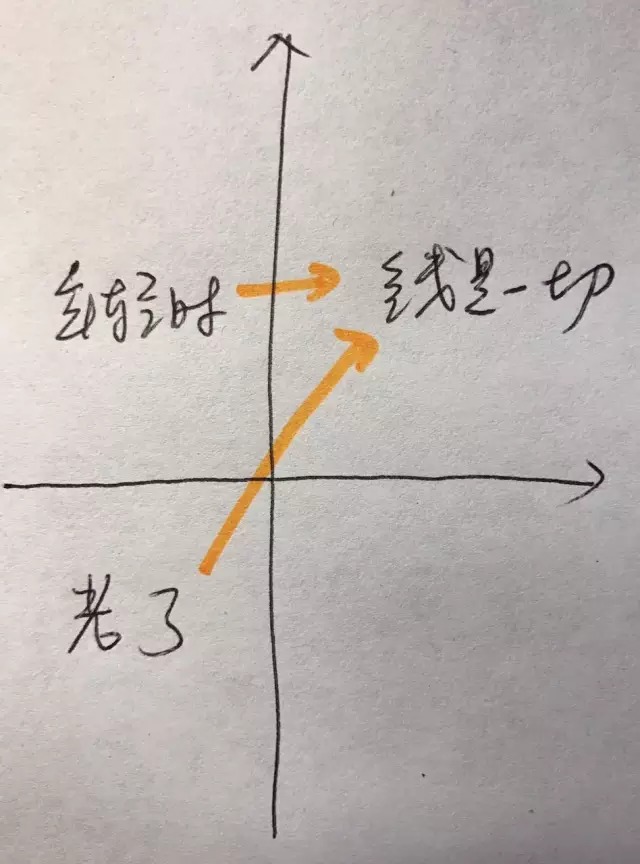 年轻时
钱是一切
老了